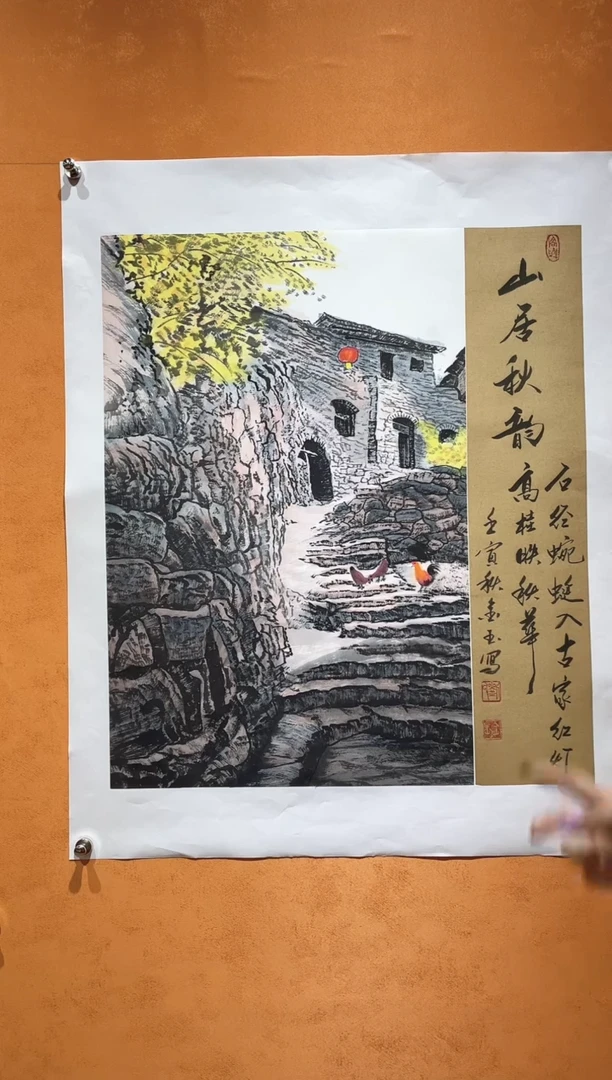 山居秋韵
石径蜿蜒入古家红灯
高挂映秋華
壬寅秋玉寫